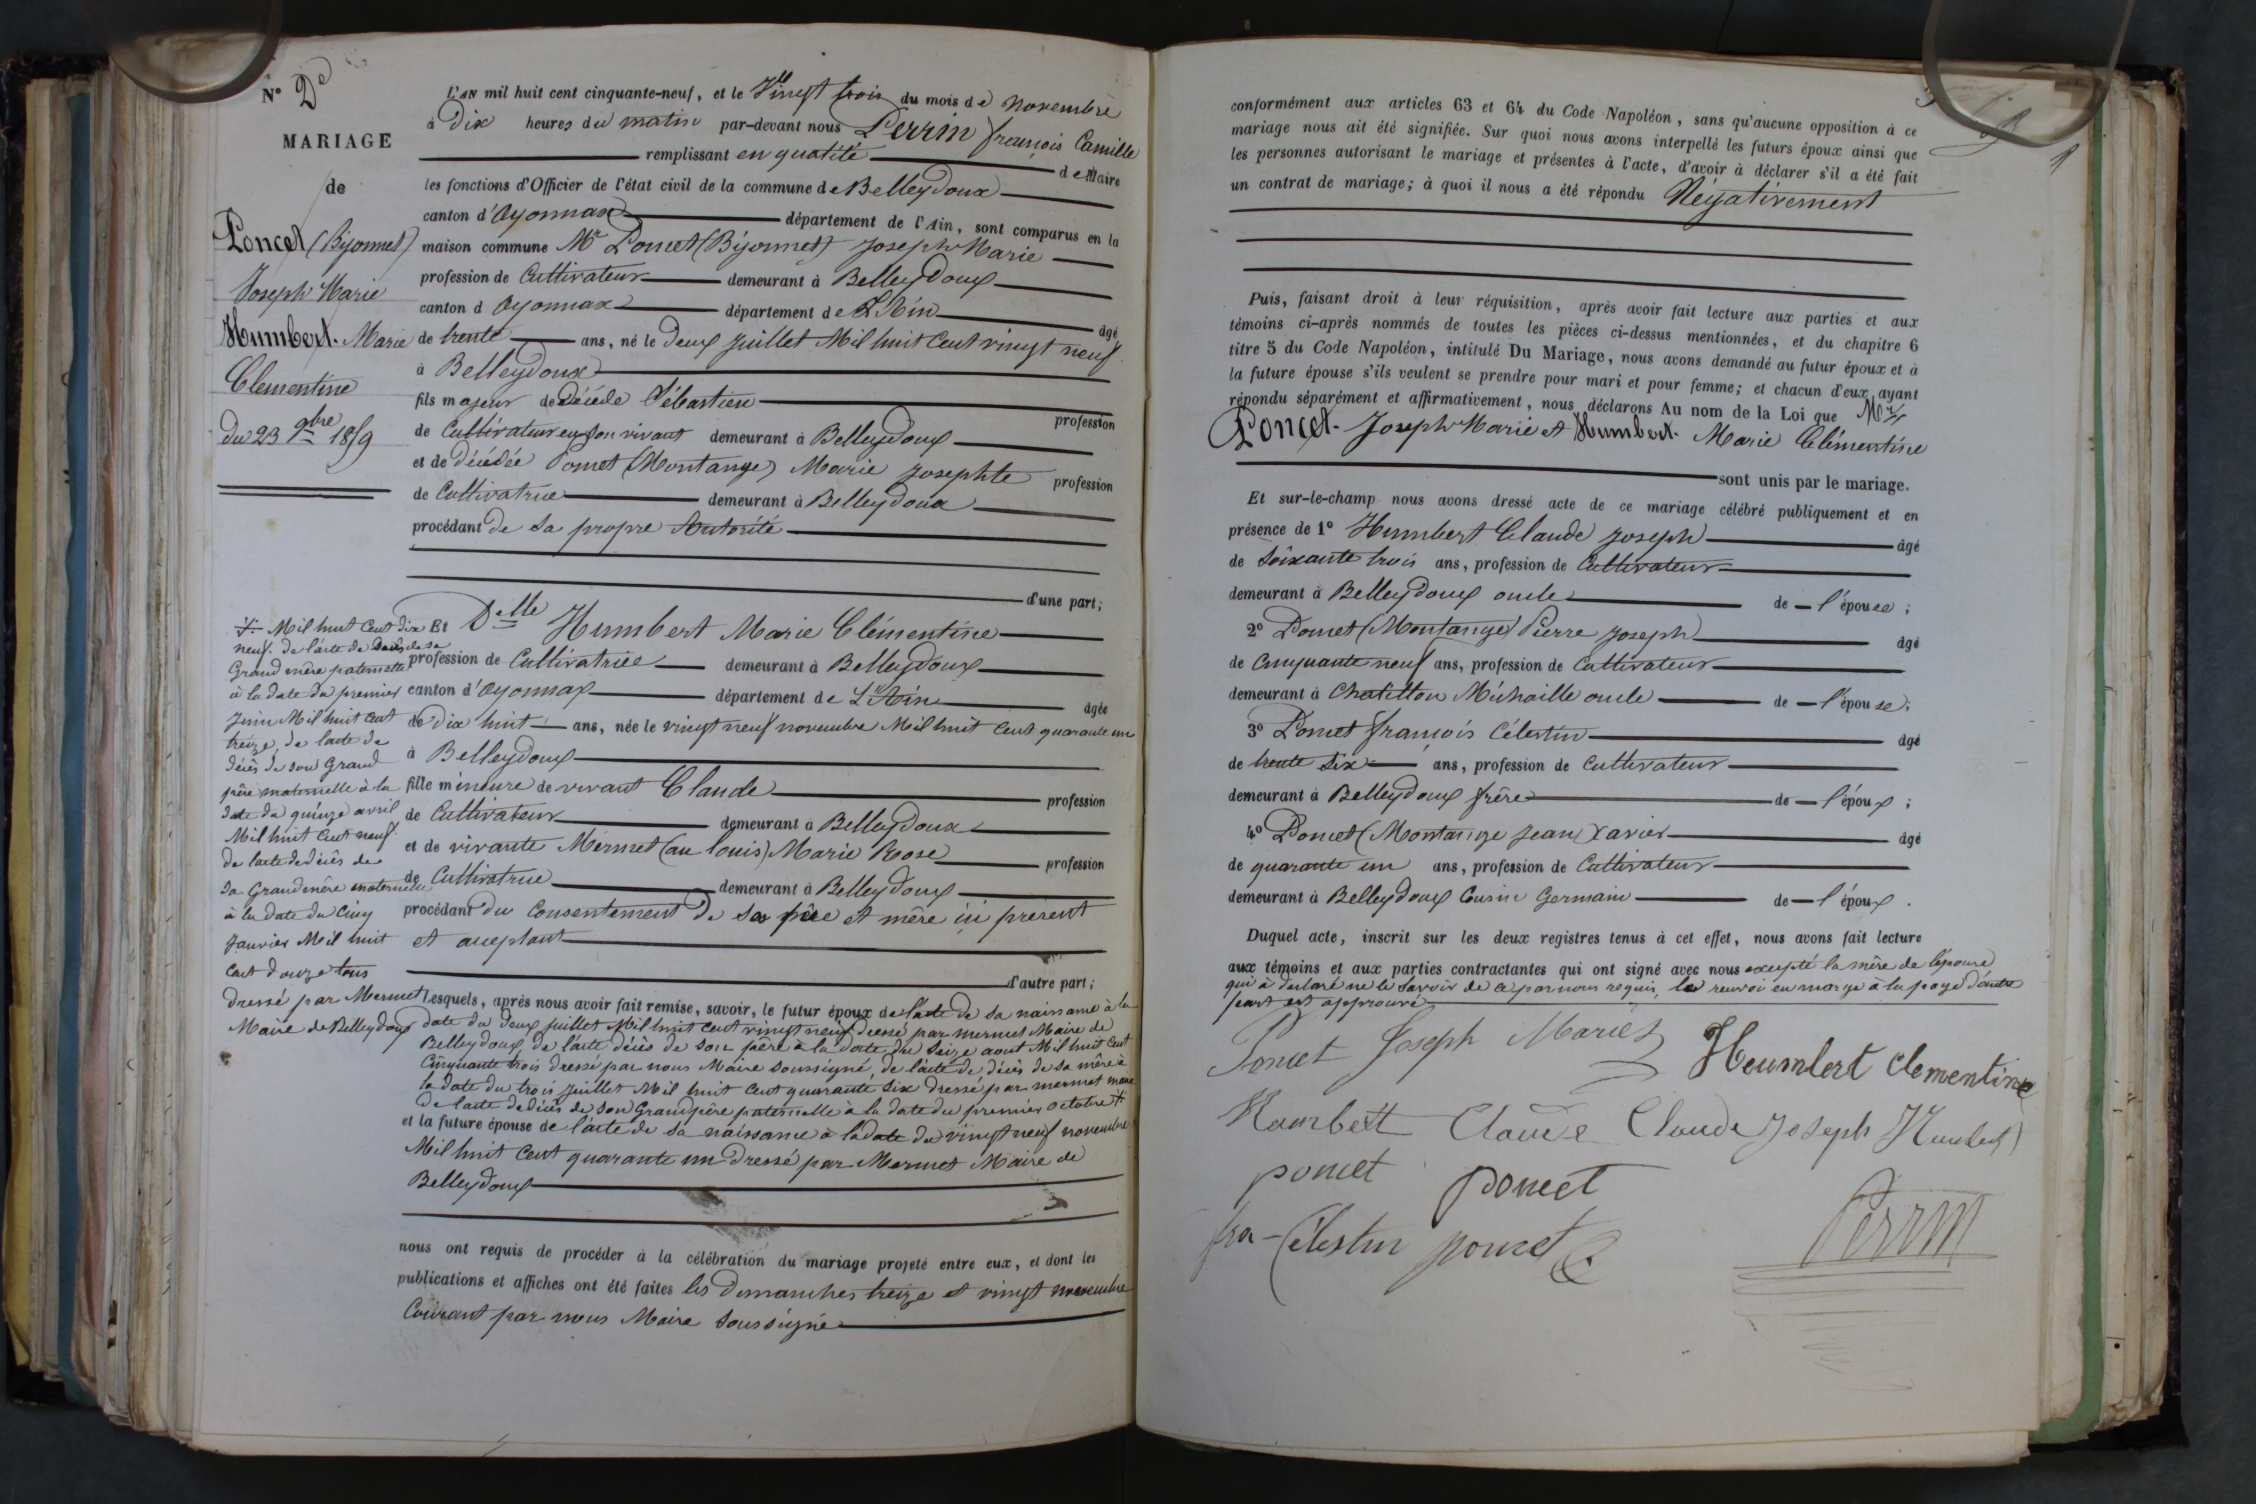 N° 2e
MARIAGE
de
Poncet (Bijonnet)
Joseph Marie
Humbert. Marie
Clementine
Du 23 9bre 1859
L'AN mil huit cent cinquante-neuf, et le Vingt trois du mois de novembre
à Dix heures du matin par-devant nous Perrin françois Camille
remplissant en qualité de Maire
les fonctions d'Officier de l'état civil de la commune de Belleydoux
canton d'Oyonnax département de l'Ain, sont comparus en la
maison commune Mr Poncet (Bijonnet) Joseph Marie
profession de Cultivateur demeurant à Belleydoux
canton d Oyonnax département de L'Ain âgé
de trente ans, né le deux Juillet Mil huit Cent vingt neuf
à Belleydoux
fils majeur de décédé Sébastien profession
de Cultivateur en son vivant demeurant à Belleydoux
et de décédée Poncet (Montange) Marie Josephte profession
de Cultivatrice demeurant à Belleydoux
procédant de sa propre Autorité
d'une part;
Et Delle Humbert Marie Clémentine
profession de Cultivatrice demeurant à Belleydoux
canton d'Oyonnax département de L'Ain âgée
de dix huit ans, née le vingt neuf novembre Mil huit Cent quarante un
à Belleydoux
fille mineure de vivant Claude profession
de Cultivateur demeurant à Belleydoux
et de vivante Mermet (au louis) Marie Rose profession
de Cultivatrice demeurant à Belleydoux
procédant du Consentement de sa père et mère ici présent
et acceptant
d'autre part;
Lesquels, après nous avoir fait remise, savoir, le futur époux de l'acte de sa naissance à la
date du deux juillet Mil huit cent vingt neuf Dressé par mermet Maire de
Belleydoux, de l'acte décès de son père à la date du seize aout Mil huit Cent
Cinquante trois dressé par nous Maire soussigné, de l'acte de décès de sa mère à
la date du trois juillet Mil huit Cent quarante six dressé par mermet maire
de l'acte de décès de son Grand père paternelle à la date du premier octobre +
et la future épouse de l'acte de sa naissance à la date du vingt neuf novembre
Mil huit Cent quarante un Dressé par Mermet Maire de
Belleydoux
nous ont requis de procéder à la célébration du mariage projeté entre eux, et dont les
publications et affiches ont été faites les Dimanches treize et vingt novembre
Courant par nous Maire soussigné
+ Mil huit Cent dix
neuf. de l'acte de décès de sa
Grand mère paternelle
à la date du premier
Juin Mil huit Cent
treize, de l'acte de
décès de son Grand
père maternelle à la
date du quinze avril
Mil huit Cent neuf
De l'acte de décès de
sa Grand mère maternelle
à la date du Cinq
Janvier Mil huit
Cent douze tous
dressé par Mermet
Maire de Belleydoux
conformément aux articles 63 et 64 du Code Napoléon, sans qu'aucune opposition à ce
mariage nous ait été signifiée. Sur quoi nous avons interpellé les futurs époux ainsi que
les personnes autorisant le mariage et présentes à l'acte, d'avoir à déclarer s'il a été fait
un contrat de mariage; à quoi il nous a été répondu Négativement
Puis, faisant droit à leur réquisition, après avoir fait lecture aux parties et aux
témoins ci-après nommés de toutes les pièces ci-dessus mentionnées, et du chapitre 6
titre 5 du Code Napoléon, intitulé Du Mariage, nous avons demandé au futur époux et à
la future épouse s'ils veulent se prendre pour mari et pour femme; et chacun d'eux ayant
répondu séparément et affirmativement, nous déclarons Au nom de la Loi que Mr
Poncet. Joseph Marie et Humbert. Marie Clémentine
sont unis par le mariage.
Et sur-le-champ nous avons dressé acte de ce mariage célébré publiquement et en
présence de 1° Humbert Claude Joseph âgé
de soixante trois ans, profession de Cultivateur
demeurant à Belleydoux oncle de l'épouse;
2° Poncet (Montange) Pierre Joseph âgé
de Cinquante neuf ans, profession de Cultivateur
demeurant à Chatillon Michaille oncle de l'épouse;
3° Poncet françois Célestin âgé
de trente six ans, profession de Cultivateur
demeurant à Belleydoux frère de l'époux;
4° Poncet (Montange Jean) Xavier âgé
de quarante un ans, profession de Cultivateur
demeurant à Belleydoux Cusin Germain de l'époux.
Duquel acte, inscrit sur les deux registres tenus à cet effet, nous avons fait lecture
aux témoins et aux parties contractantes qui ont signé avec nous excepté la mère de l'épouse
qui à déclaré ne le savoir de ce par nous requis, le renvoi en marge à la page d'autre
part est approuvé
Poncet Joseph Marie
Heumbert clementine
Humbert Claude Claude Joseph Humbert
poncet poncet
fra-Célestin poncet
Perrin